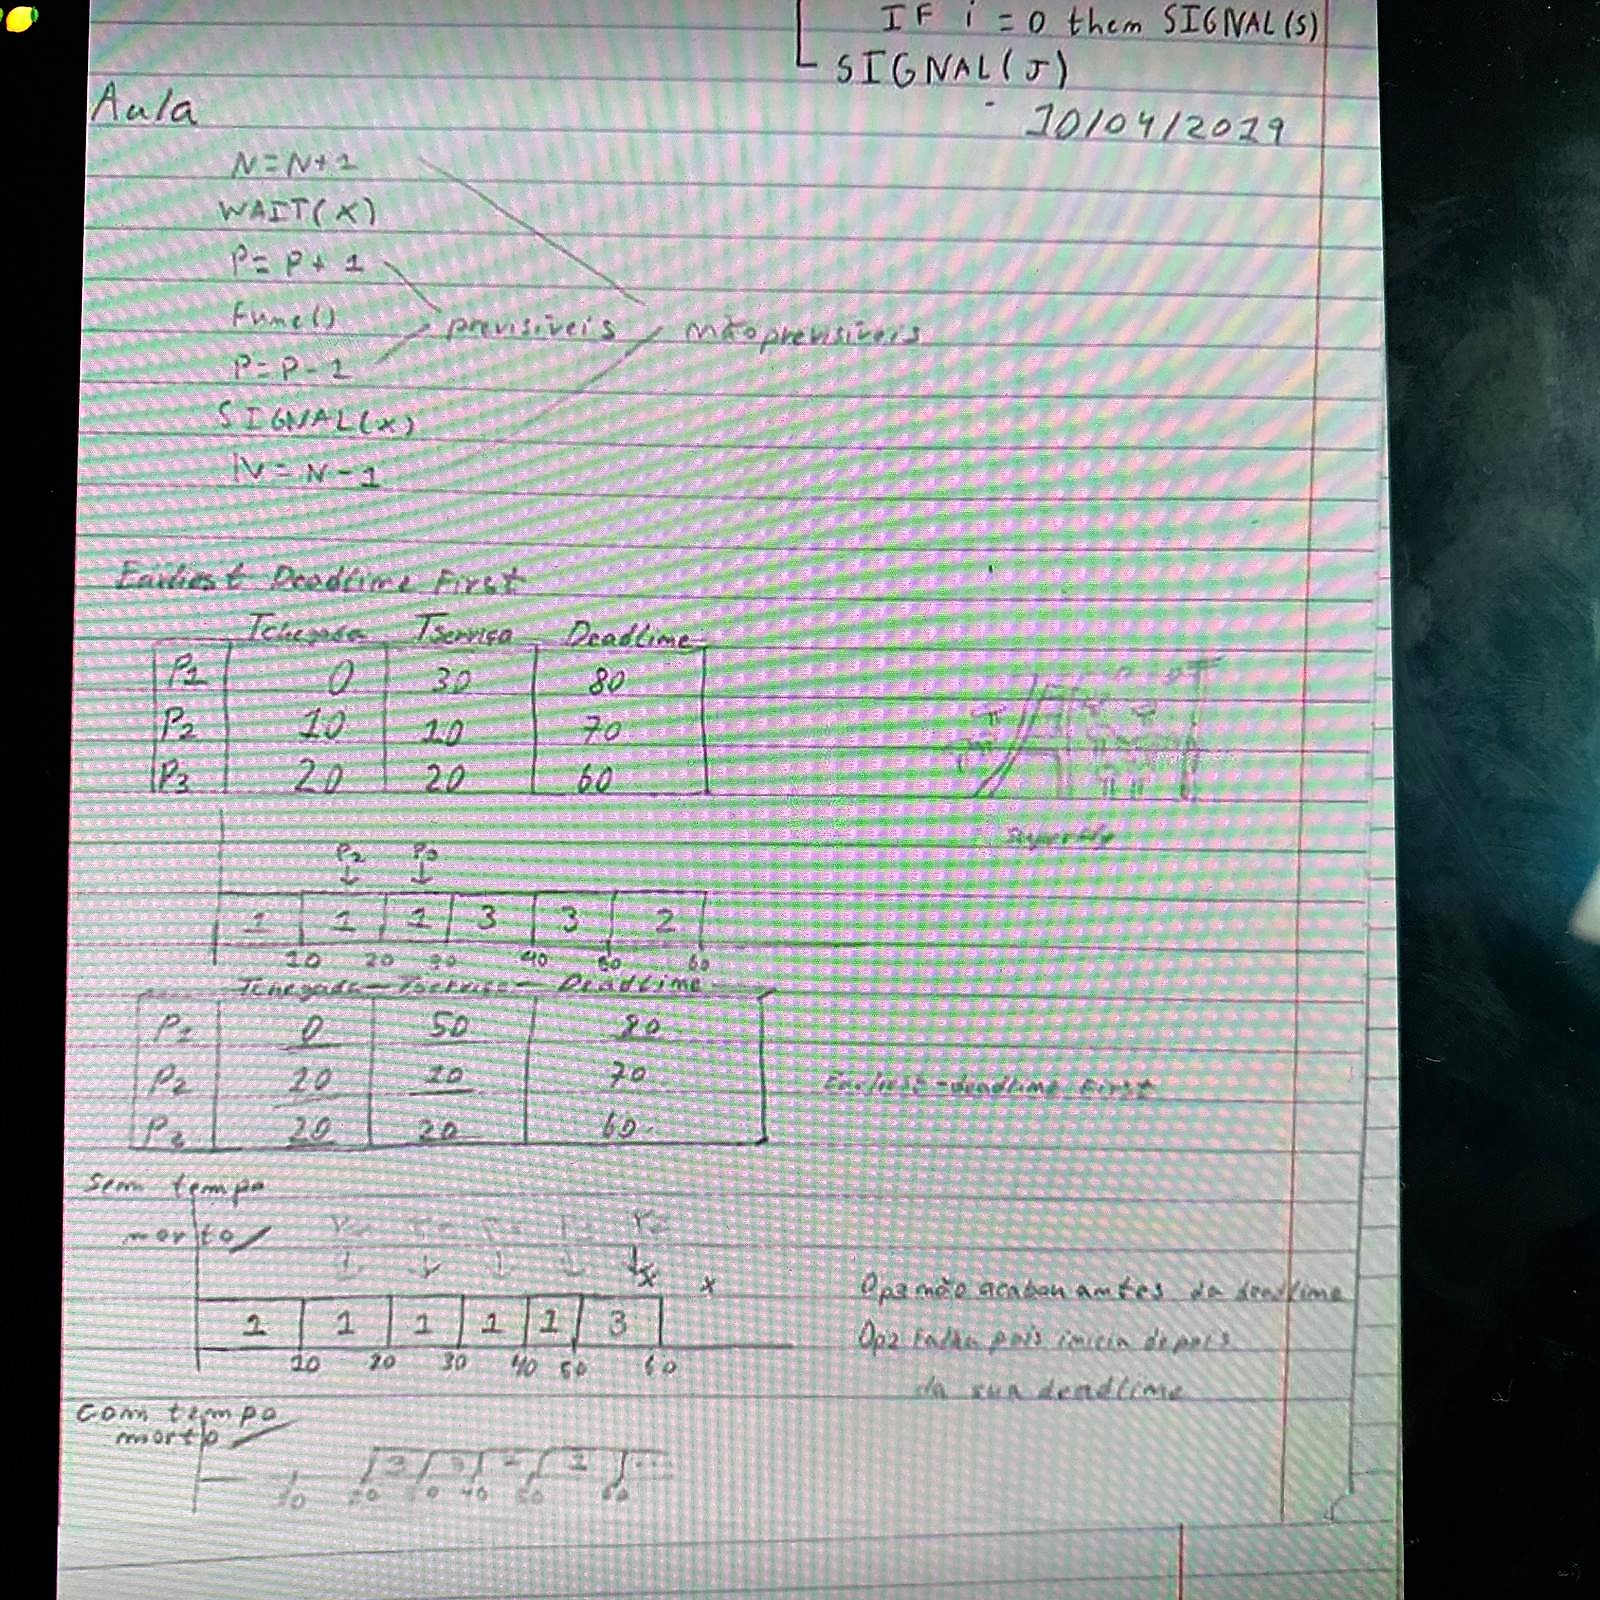 IF i = 0 then SIGNAL(S)
SIGNAL(J)
Aula
10/04/2019
N=N+1
WAIT(X)
P=P+1
Func()
previsíveis
não previsíveis
P=P-1
SIGNAL(X)
N=N-1
Earliest Deadline First
Tchegada Tserviço Deadline
P1 0 30 80
P2 10 10 70
P3 20 20 60
P2 P3
1 1 1 3 3 2
10 20 30 40 50 60
Tchegada Tserviço Deadline
P1 0 50
P2 20 10 70
20 20 60
Earliest-deadline First
Sem tempo
morto
1 1 1 1 1 3
10 20 30 40 50 60
O p3 não acabou antes da deadline
O p2 falha pois inicia depois
da sua deadline
Com tempo
morto
3 3 2 1
10 20 30 40 50 60